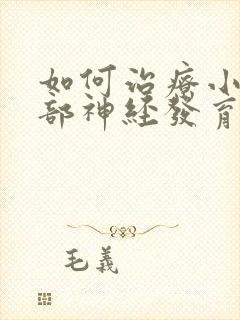 如何治療小
部神經發育
毛義